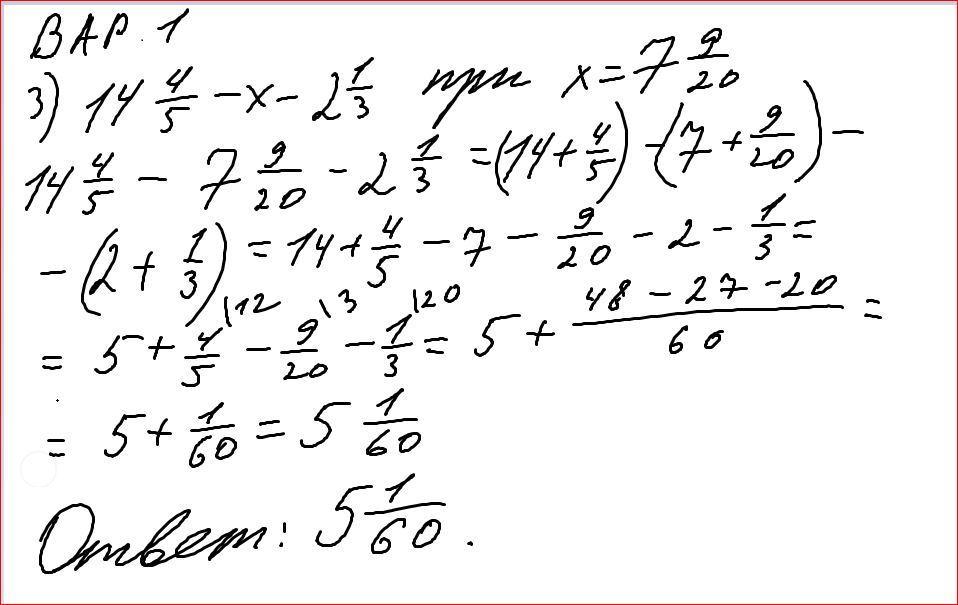 ВАР. 1
3) 14 4/5 - x - 2 1/3 при x = 7 9/20
14 4/5 - 7 9/20 - 2 1/3 = (14 + 4/5) - (7 + 9/20) -
- (2 + 1/3) = 14 + 4/5 - 7 - 9/20 - 2 - 1/3 =
= 5 + 4/5 \12 - 9/20 \3 - 1/3 \20 = 5 + (48 - 27 - 20)/60 =
= 5 + 1/60 = 5 1/60
Ответ: 5 1/60.